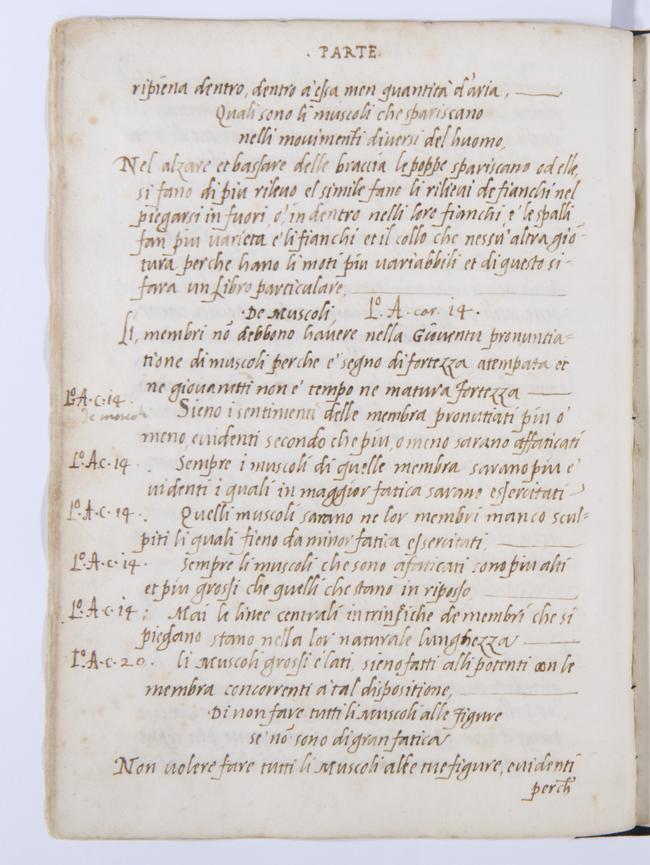 . PARTE.
ripiena dentro, dentro à essa men quantità d'aria,
Quali sono li muscoli che spariscano
nelli movimenti diversi del huomo,
Nel alzare et bassare delle braccia le poppe spariscano o delle,
si fano di piu rilevo el simile fano li rilievi de fianchi nel
piegarsi in fuori, ò, in dentro nelli loro fianchi, e le spalli
fan piu varieta e li fianchi et il collo che nessu' altra gio-
tura perche hano li moti piu variabbili et di questo si-
fara un libro particulare,
De Muscoli, Lº. A. car. 14.
Li, membri nō debbono havere nella Gioventu pronuntia=
tione di muscoli perche e' segno di fortezza atempata et
ne giovanetti non e' tempo ne matura fortezza
Lº.A.c.14.
de muscoli
Sieno i sentimenti delle membra pronutiati piu ò
meno, evidenti secondo che piu, o meno sarano affaticati
Lº.A.c.14 . Sempre i muscoli di quelle membra sarano piu e'
videnti i quali in maggior fatica sarano essercitati
Lº.A.c.14. . Quelli muscoli sarano ne lor membri manco scul=
piti li quali fieno da minor fatica essercitati,
Lº.A.c.14. Sempre li muscoli che sono afaticati sono piu alti
et piu grossi che quelli che stano in riposso,
Lº.A.c.14 : Mai le linee centrali intrinsiche de membri che si
piegano stano nella lor naturale lunghezza
Lº.A.c.20. li Muscoli grossi e lati, sieno fatti alli potenti con le
membra concorrenti à tal dispositione,
Di non fare tutti li Muscoli alle figure
se nō sono di gran fatica
Non volere fare tutti li Muscoli alle tue figure, evidenti
perch